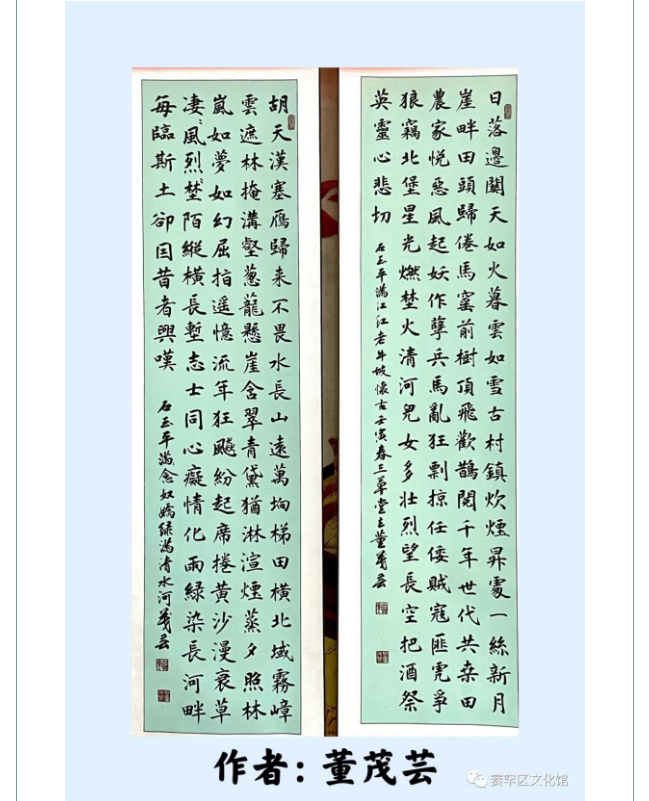 日落邊關天如火暮雲如雪古村鎮炊煙昇處一絲新月
崖畔田頭歸倦馬窰前樹頂飛歡鵲閱千年世代共桑田
農家悅惡風起妖作孽兵馬亂狂剽掠任倭賊寇匪兇爭
狼竊北堡星光燃埜火清河兒女多壯烈望長空把酒祭
英靈心悲切 石玉平滿江红老牛坡懷古壬寅春三草堂主董茂芸
胡天漢塞鴈歸来不畏水長山遠萬垧梯田橫北域霧嶂
雲遮林掩溝壑蔥蘢懸崖含翠青黛猶淋渲煙蒸夕照林
嵐如夢如幻屈指遥憶流年狂飈紛起席捲黃沙漫衰草
淒〻風烈〻埜陌縱橫長塹志士同心癡情化雨綠染長河畔
每臨斯土卻因昔者興嘆 石玉平滿念奴嬌绿滿清水河茂芸
作者：董茂芸
赛罕区文化馆